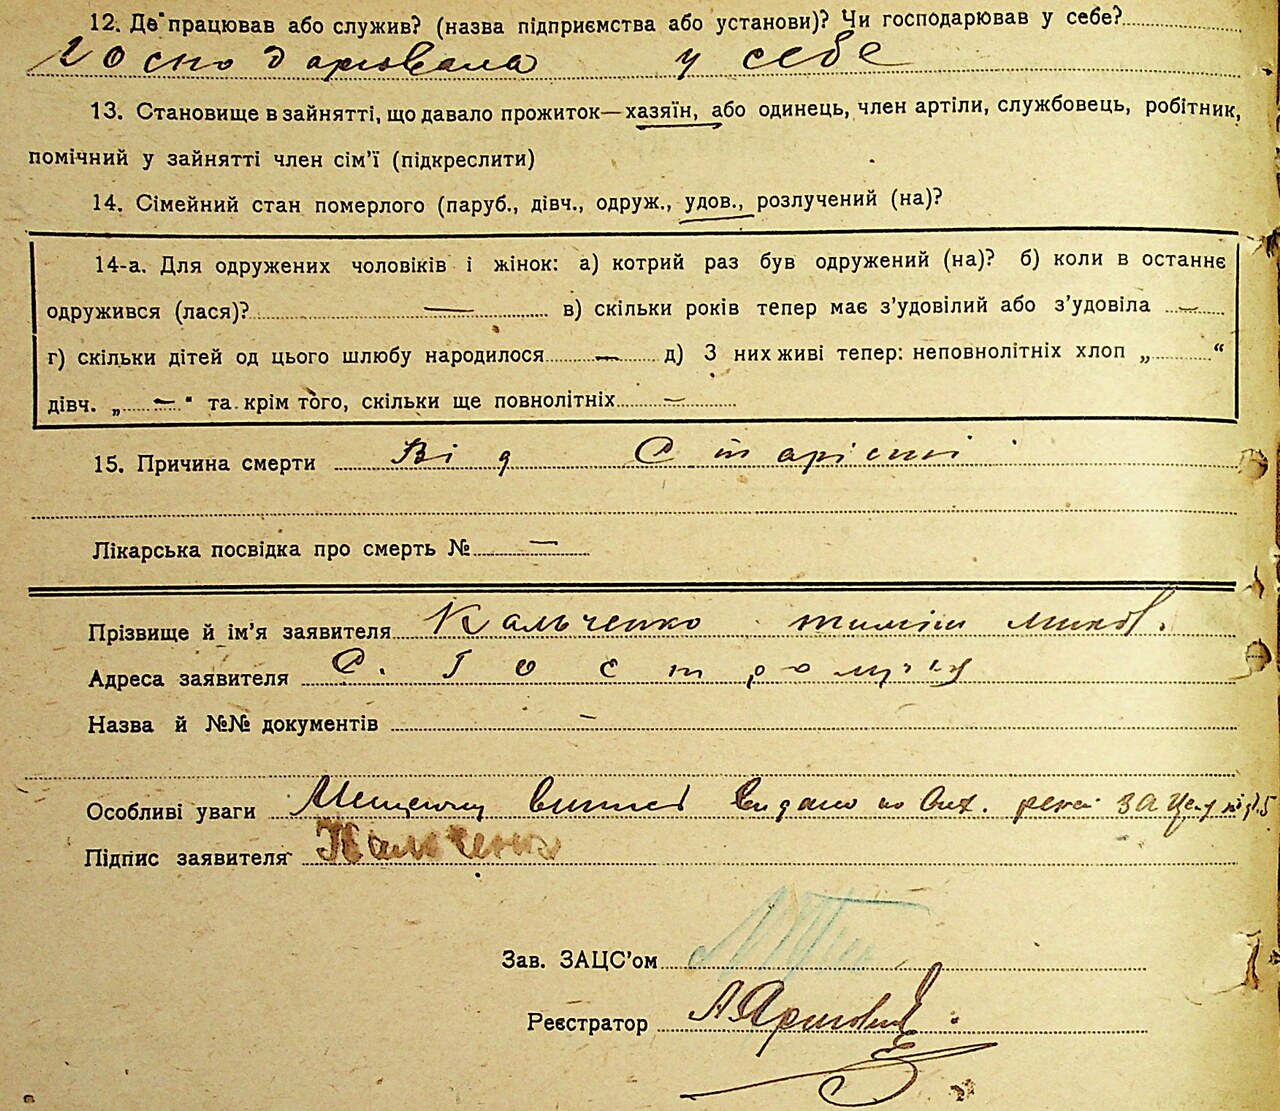 12. Де працював або служив? (назва підприємства або установи)? Чи господарював у себе?
господарювала у себе
13. Становище в зайнятті, що давало прожиток—хазяїн, або одинець, член артіли, службовець, робітник,
помічний у зайнятті член сім'ї (підкреслити)
14. Сімейний стан померлого (паруб., дівч., одруж., удов., розлучений (на)?
14-а. Для одружених чоловіків і жінок: а) котрий раз був одружений (на)? б) коли в останнє
одружився (лася)? — в) скільки років тепер має з'удовілий або з'удовіла —
г) скільки дітей од цього шлюбу народилося — д) З них живі тепер: неповнолітніх хлоп „ “
дівч. „ — “ та крім того, скільки ще повнолітніх —
15. Причина смерти Від Старісті
Лікарська посвідка про смерть № —
Прізвище й ім'я заявителя Кальченко
Адреса заявителя С.
Назва й №№ документів —
Особливі уваги видано по
Підпис заявителя Кальченко
Зав. ЗАЦС'ом
Реєстратор